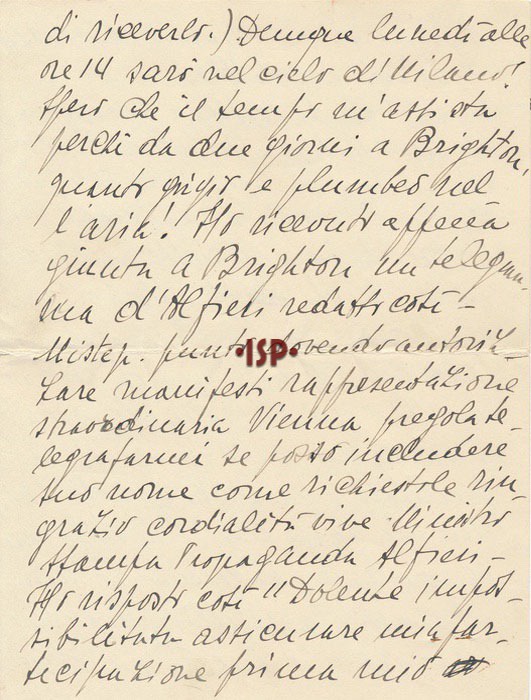 di riceverlo.) Dunque lunedì alle
ore 14 sarò nel cielo di Milano!
Spero che il tempo m'assista
perchè da due giorni a Brighton,
quanto grigio e plumbeo nel
l'aria! Ho ricevuto appena
giunta a Brighton un telegram
ma d'Alfieri redatto così -
punto dovendo autoriz-
•ISP•
zare manifesti rappresentazione
straordinaria Vienna pregola te-
legrafarmi se posso includere
suo nome come richiestole rin
grazio cordialità vive Ministro
Stampa Propaganda Alfieri -
Ho risposto così "Dolente impos-
sibilitata assicurare mia par-
tecipazione prima mio